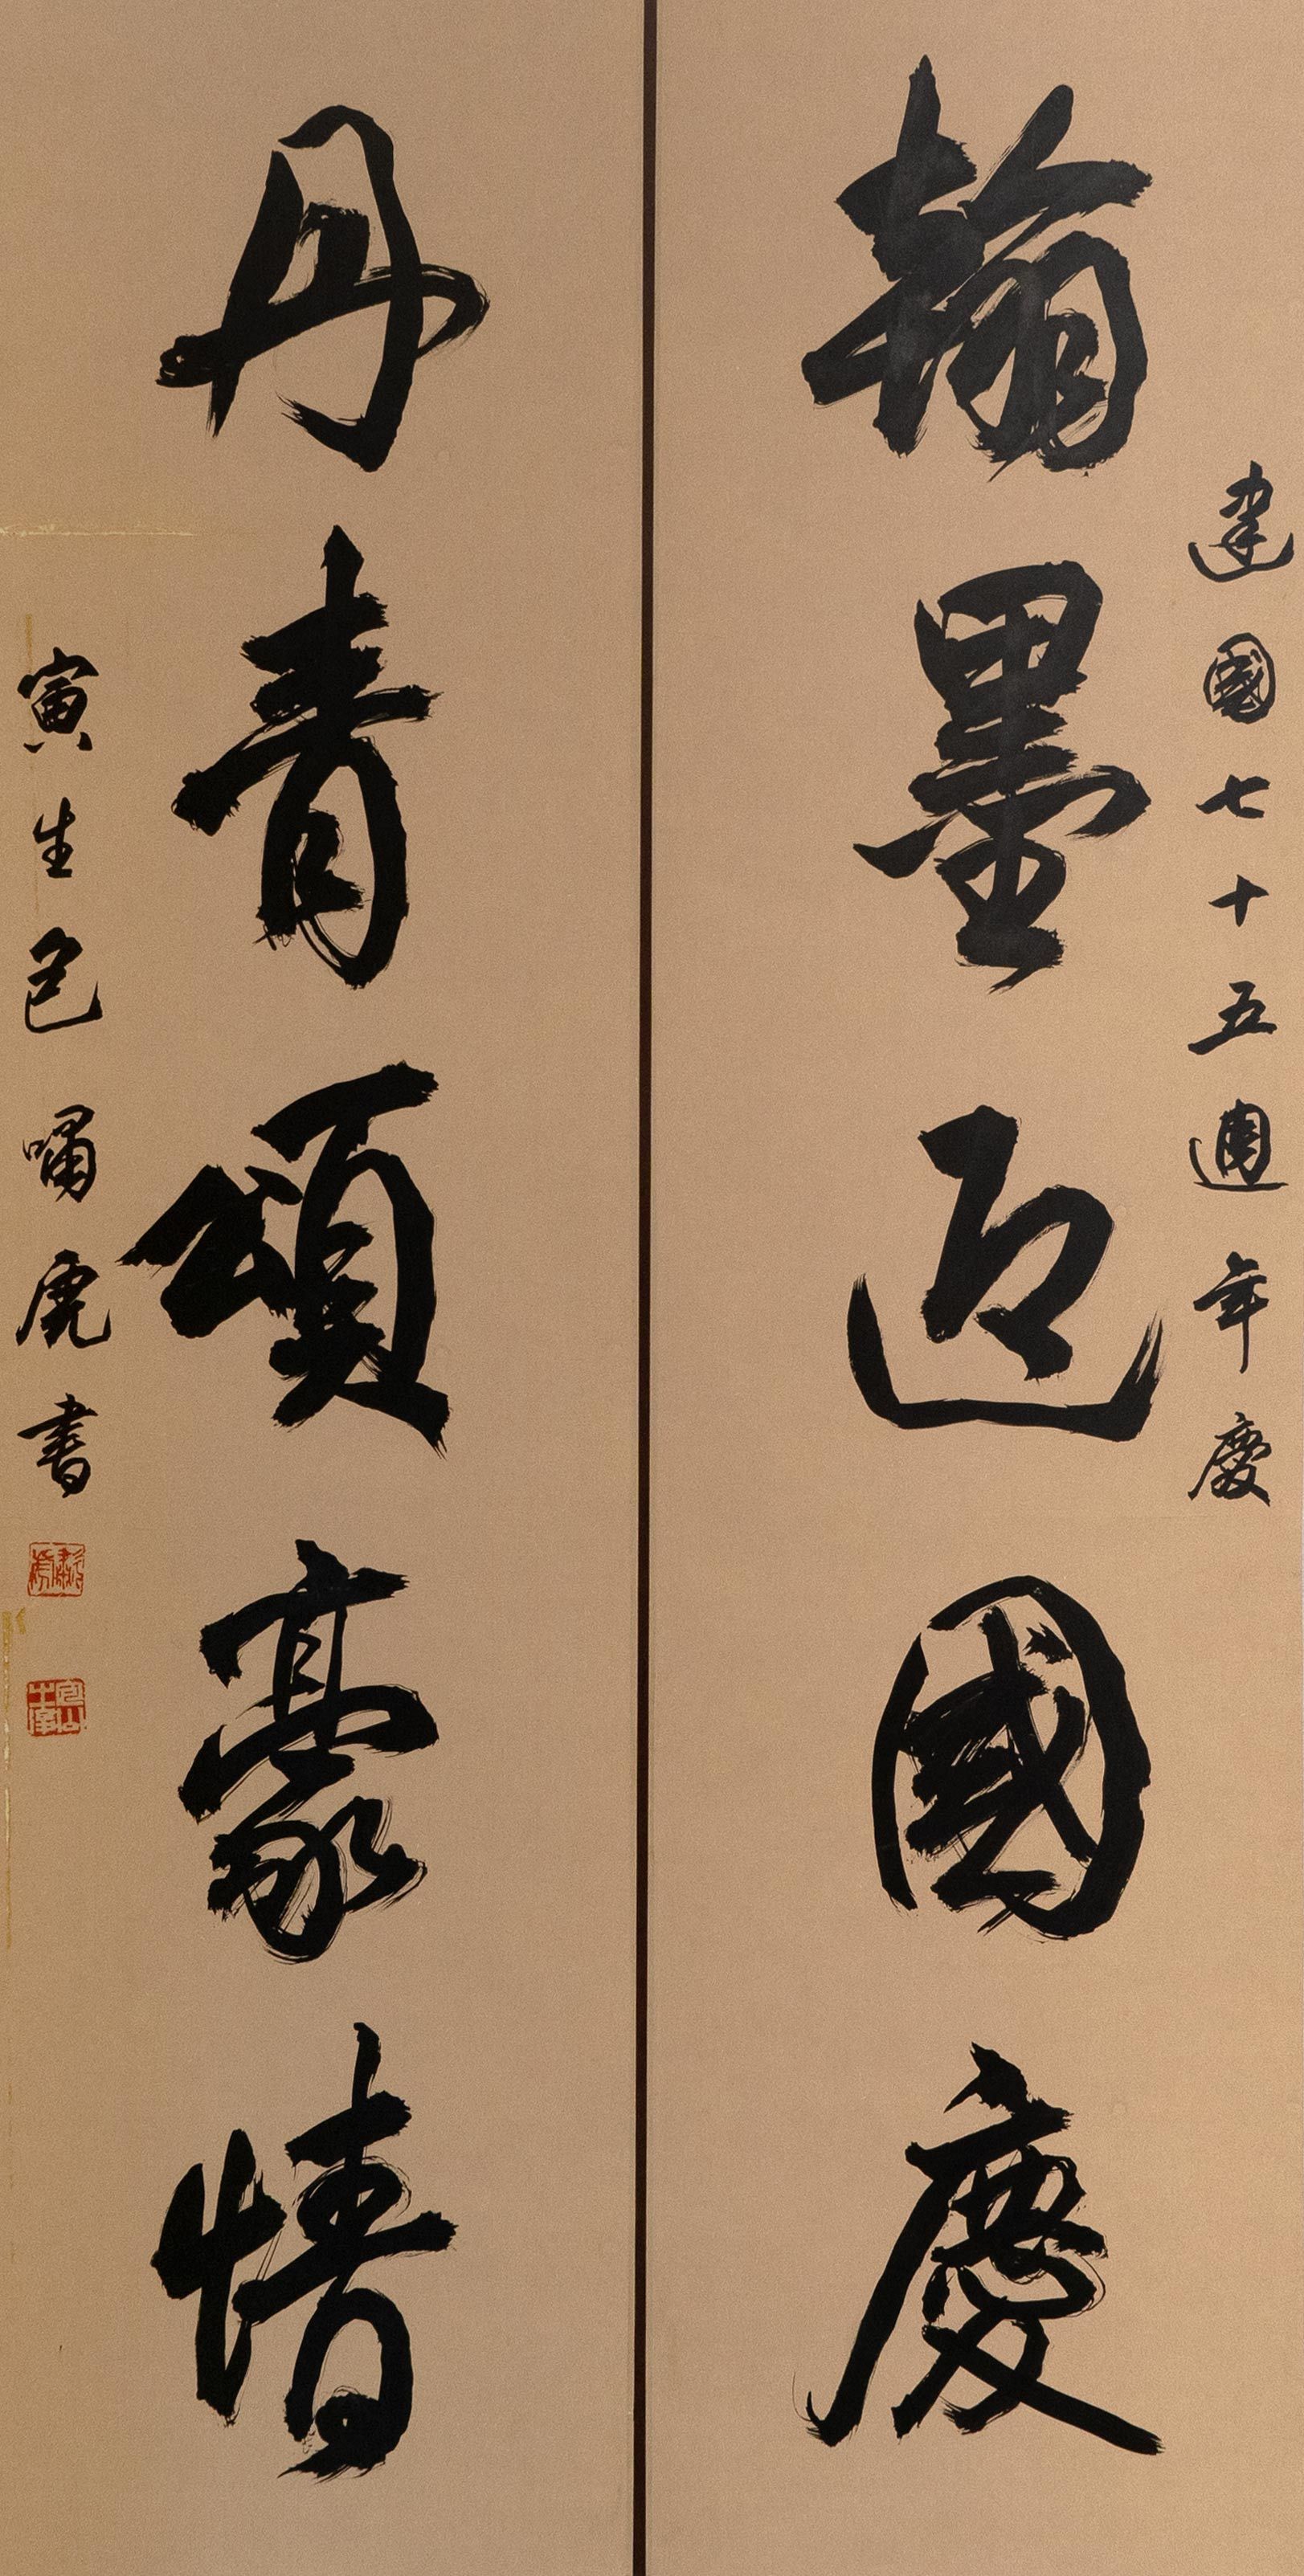 建國七十五週年慶
翰墨迎國慶
丹青頌豪情
寅生包嘯虎書